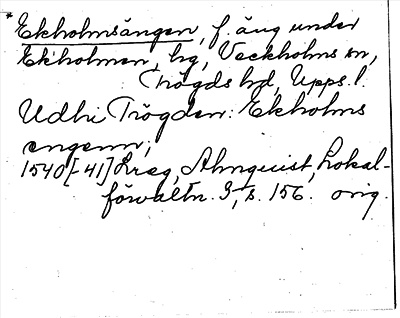 * Ekholmsängen, f. äng under
Ekholmen, hg, Veckholms sn,
Trögds hd, Upps. l.
Udhi Trögden: Ekholms
engenn;
1540[-41] Lreg, Almquist, Lokal-
förvaltn. 3, s. 156. orig.